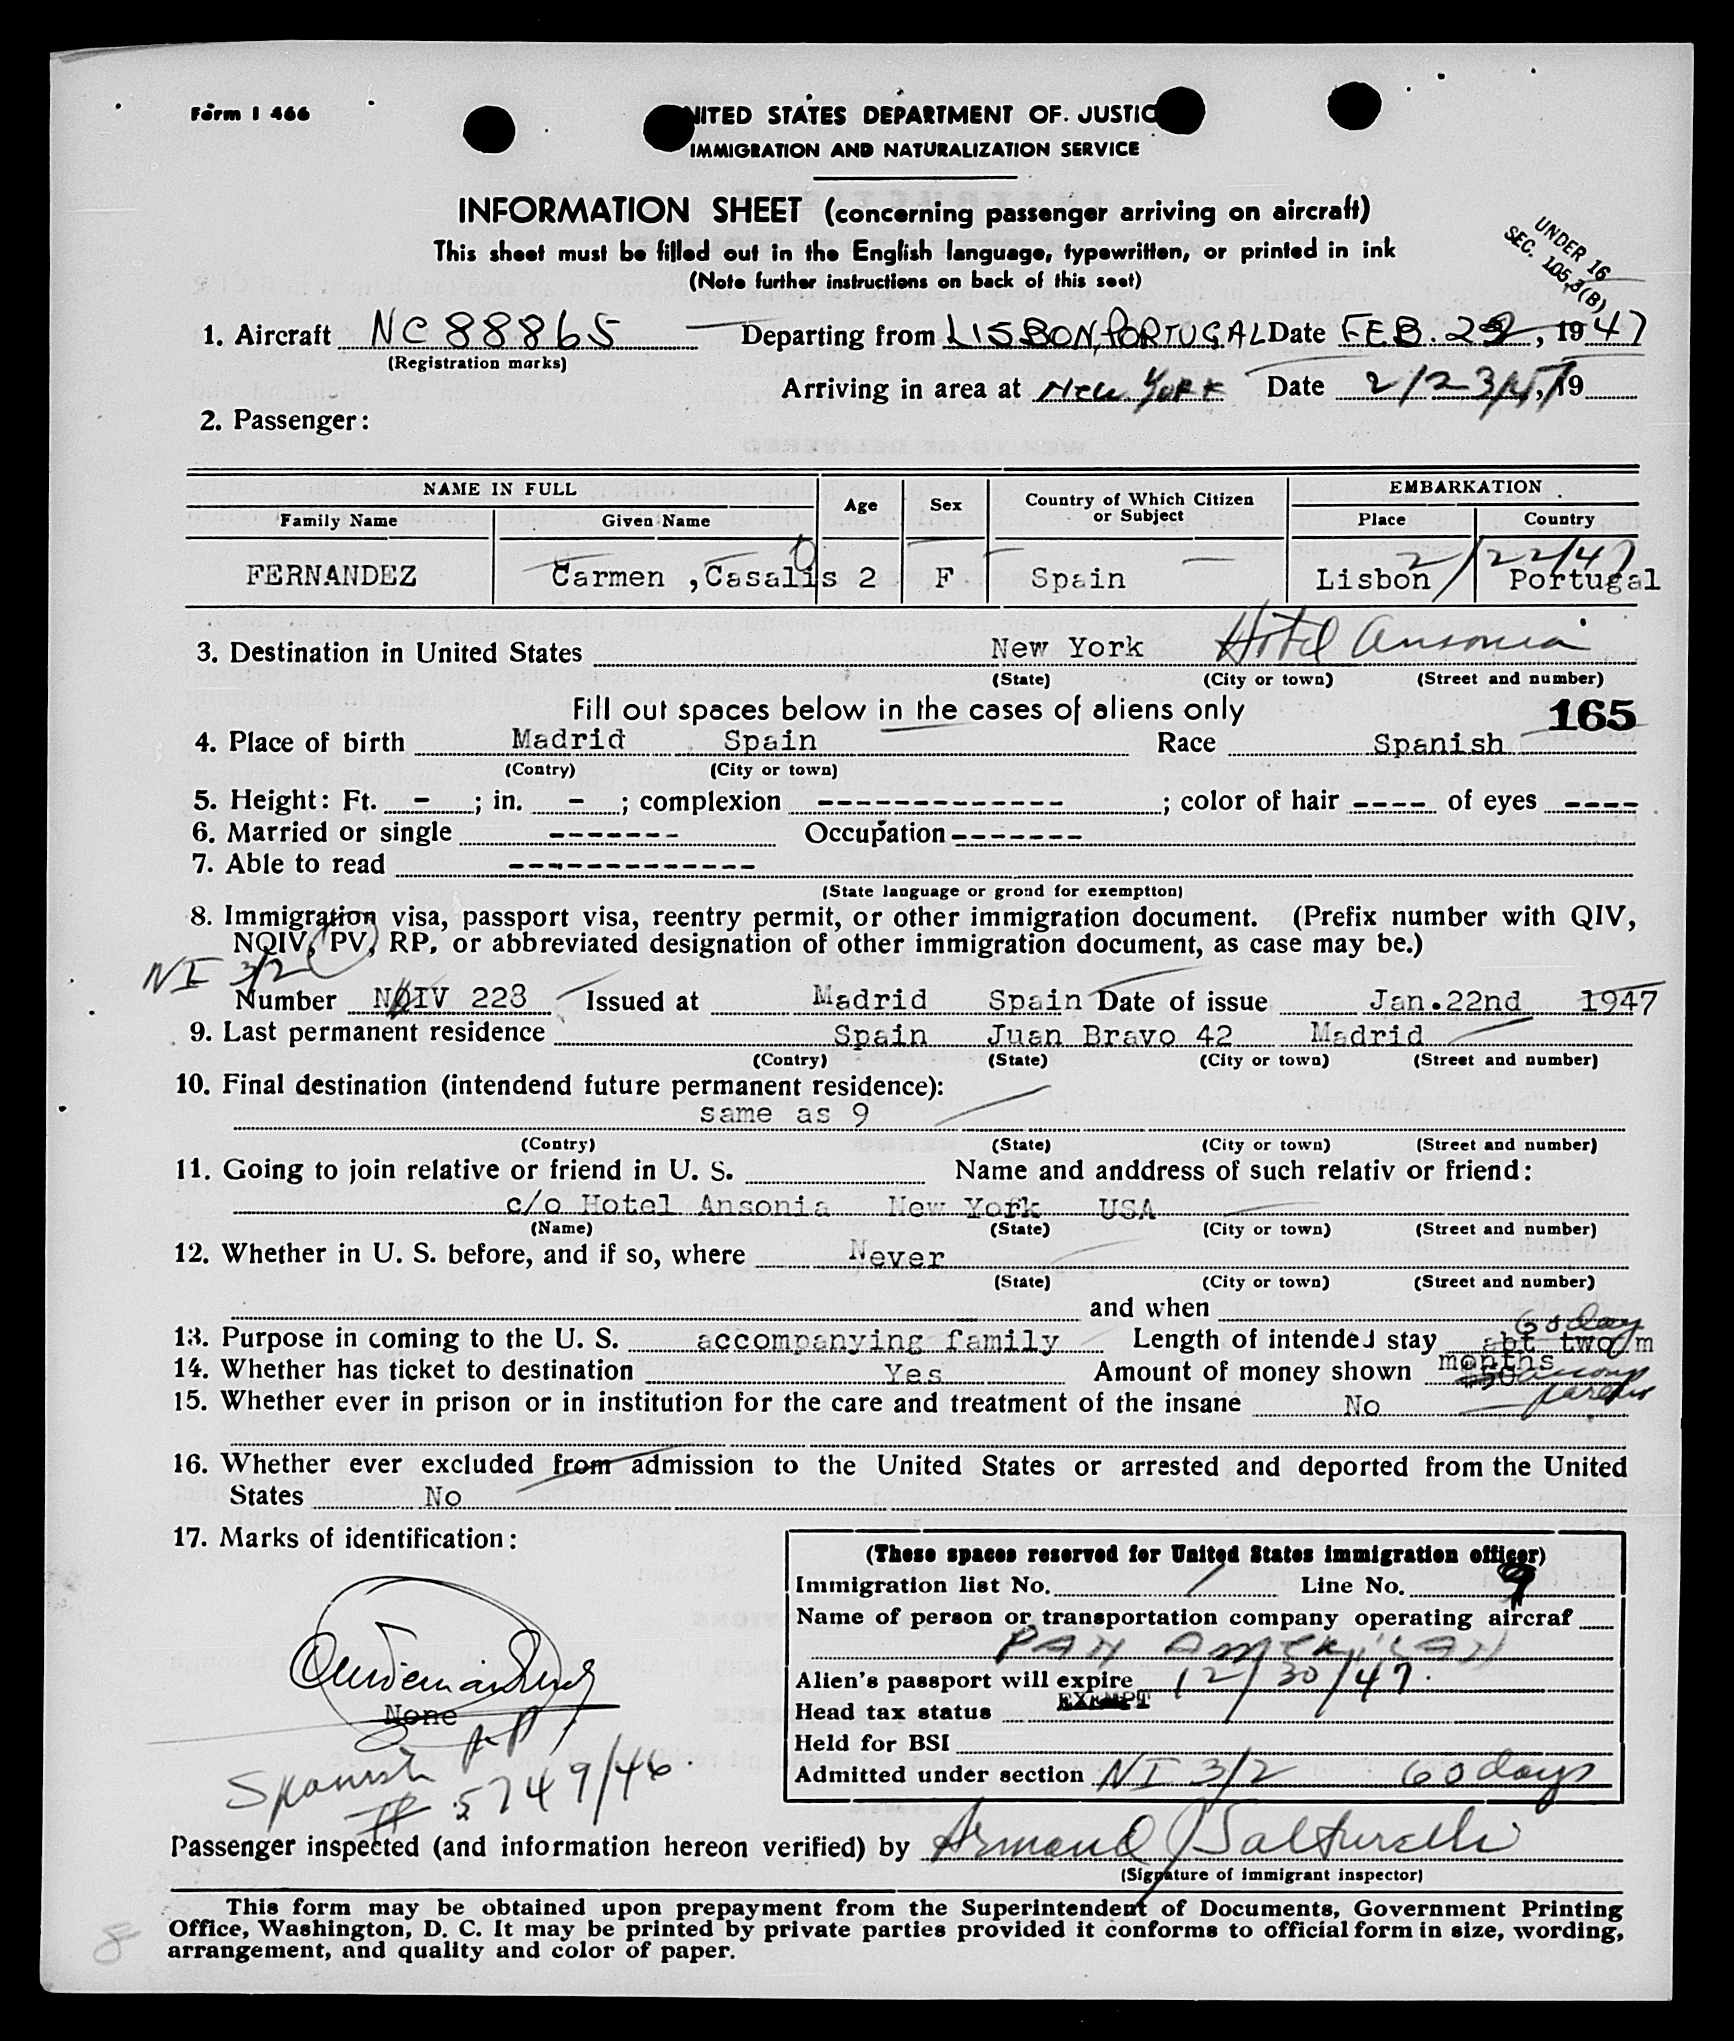 Form I 466
NITED STATES DEPARTMENT OF. JUSTIC
IMMIGRATION AND NATURALIZATION SERVICE
INFORMATION SHEET (concerning passenger arriving on aircraft)
This sheet must be filled out in the English language, typewritten, or printed in ink
(Note further instructions on back of this seet)
UNDER 16
SEC. 105,3(B)
1. Aircraft NC 88865 Departing from LISBON, PORTUGAL Date FEB. 22, 1947
(Registration marks)
Arriving in area at New York Date 2/23/47, 19
2. Passenger:
NAME IN FULL Age Sex Country of Which Citizen or Subject EMBARKATION
Family Name Given Name Place Country
2/22/47
FERNANDEZ Carmen ,Casalis 2 F Spain Lisbon Portugal
3. Destination in United States New York Hotel Ansonia
(State) (City or town) (Street and number)
Fill out spaces below in the cases of aliens only 165
4. Place of birth Madrid Spain Race Spanish
(Contry) (City or town)
5. Height: Ft. - ; in. - ; complexion ------------- ; color of hair ---- of eyes ----
6. Married or single ------- Occupation -------
7. Able to read -------------
(State language or grond for exemption)
8. Immigration visa, passport visa, reentry permit, or other immigration document. (Prefix number with QIV,
NQIV, PV, RP, or abbreviated designation of other immigration document, as case may be.)
NI 3/2
Number NQIV 223 Issued at Madrid Spain Date of issue Jan.22nd 1947
9. Last permanent residence Spain Juan Bravo 42 Madrid
(Contry) (State) (City or town) (Street and number)
10. Final destination (intendend future permanent residence):
same as 9
(Contry) (State) (City or town) (Street and number)
11. Going to join relative or friend in U. S. Name and anddress of such relativ or friend:
c/o Hotel Ansonia New York USA
(Name) (State) (City or town) (Street and number)
12. Whether in U. S. before, and if so, where Never
(State) (City or town) (Street and number)
and when
60 day
13. Purpose in coming to the U. S. accompanying family Length of intended stay abt two m
months
14. Whether has ticket to destination Yes Amount of money shown $50 accomp
parents
15. Whether ever in prison or in institution for the care and treatment of the insane No
16. Whether ever excluded from admission to the United States or arrested and deported from the United
States No
17. Marks of identification:
None
Spanish PP
# 5749/46.
(These spaces reserved for United States immigration officer)
Immigration list No. 1 Line No. 9
Name of person or transportation company operating aircraf
PAN AMERICAN
Alien's passport will expire 12/30/47.
Head tax status EXEMPT
Held for BSI
Admitted under section NI 3/2 60 days
Passenger inspected (and information hereon verified) by Armand J Salturelli
(Signature of immigrant inspector)
This form may be obtained upon prepayment from the Superintendent of Documents, Government Printing
Office, Washington, D. C. It may be printed by private parties provided it conforms to official form in size, wording,
arrangement, and quality and color of paper.
8